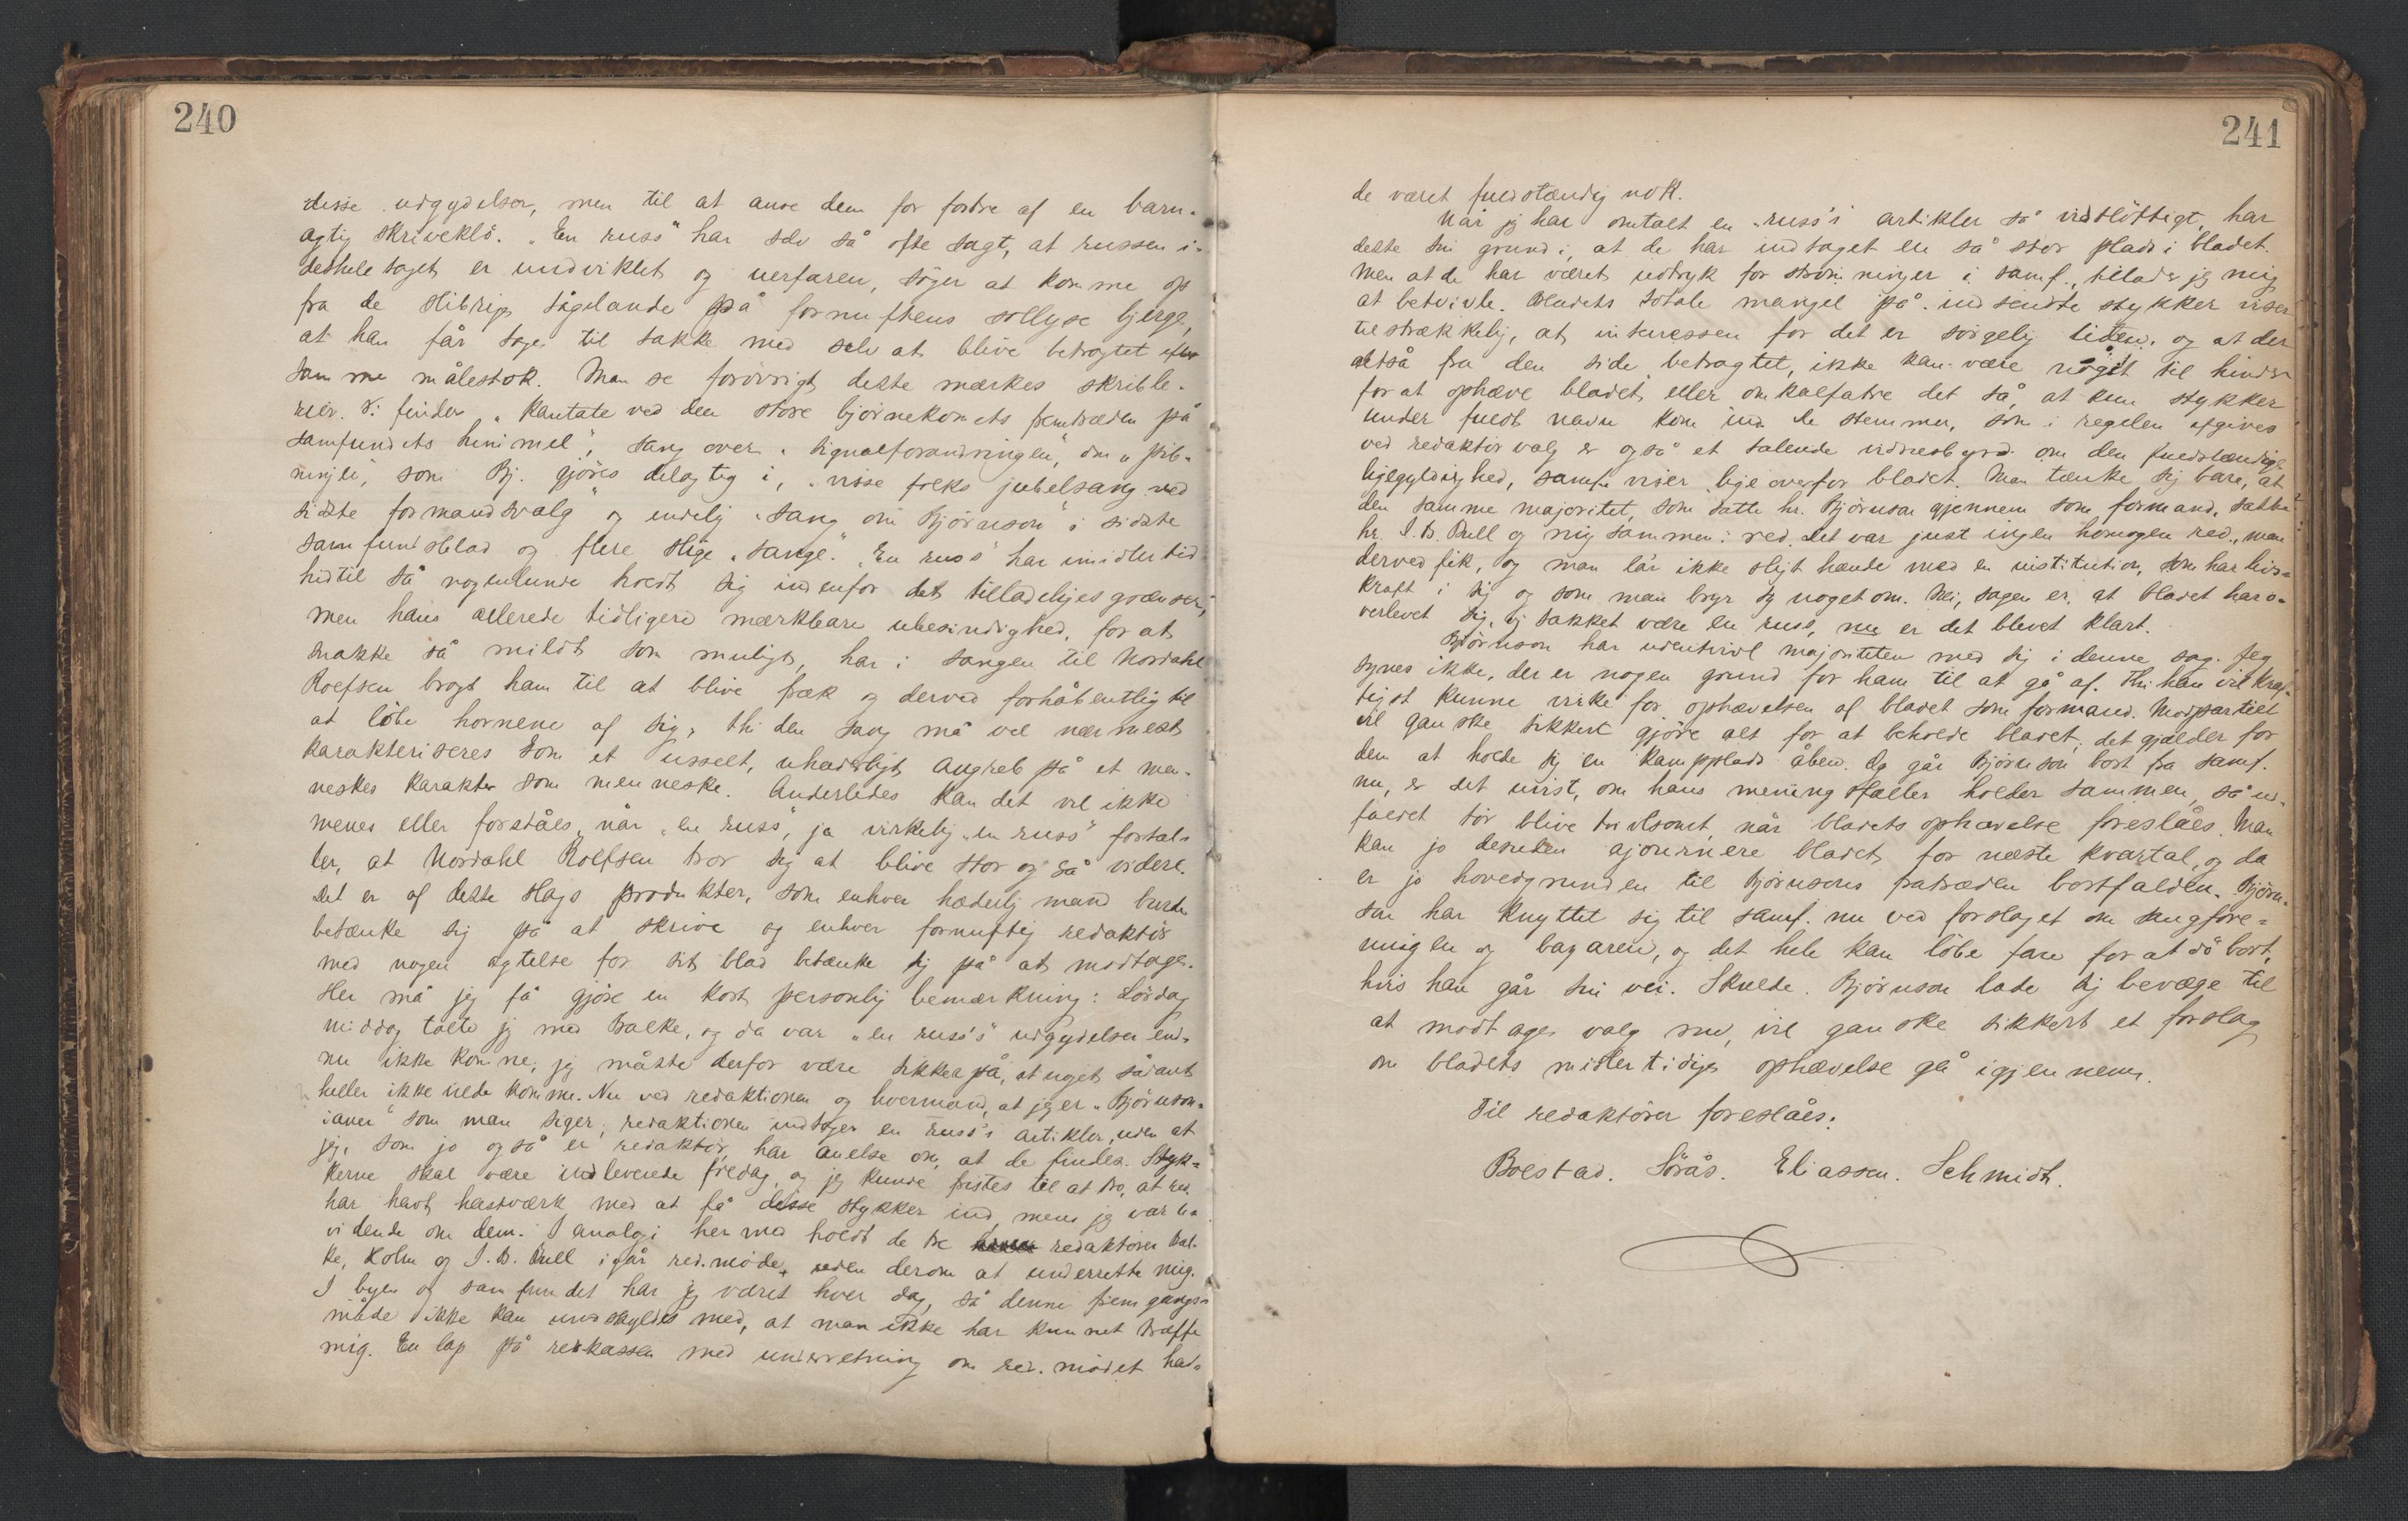 240
disse udgydelser, men til at anse dem for fostre af en barn-
agtig skriveklö. "En russ" har selv så ofte sagt, at russen i-
dethele taget er uudviklet og uerfaren, söger at komme op
fra de slibrige tågelande på fornuftens sollyse bjerge,
at han får tage til takke med selv at blive betragtet efter
samme målestok. Man se forövrigt dette mærkes skrible-
rier. Vi finder "Kantate ved den store björnekomets fremtræden på
samfundets himmel", sang over "signalforandringen", om "pib-
ningen", som Bj. gjöres delagtig i, "visse folks jubelsang ved
sidste formandsvalg" og endelig "sang om Björnson" i sidste
samfundsblad og flere slige "sange." "En russ" har imidlertid
hidtil så nogenlunde holdt sig indenfor det tilladeliges grænser,
men hans allerede tidligere mærkbare ubesindighed, for at
snakke så mildt som muligt, har i sangen til Nordahl
Rolfsen bragt ham til at blive fræk og derved forhåbentlig til
at löbe hornene af sig, thi den sang må vel nærmest
karakteriseres som et usselt, uhæderligt angreb på et men-
neskes karakter som menneske. Anderledes kan det vel ikke
menes eller forståes, når "en russ", ja virkelig "en russ" fortæl-
ler, at Nordahl Rolfsen tror sig at blive stor og så videre.
Det er af dette slags produkter, som enhver hæderlig mand burde
betænke sig på at skrive og enhver fornuftig redaktör
med nogen agtelse for sit blad betænke sig på at modtage.
Her må jeg få gjöre en kort personlig bemærkning: Lördag
middag talte jeg med Balke, og da var "en russ's" udgydelser end-
nu ikke komne, jeg måtte derfor være sikker på, at noget sådant
heller ikke vilde komme. Nu ved redaktionen og hvermand, at jeg er "Björnson-
ianer" som man siger, redaktionen indtager en russ's artikler, uden at
jeg, som jo også er redaktör, har anelse om, at de findes. Styk-
kerne skal være indleverede fredag, og jeg kunde fristes til at tro, at red.
har havt hastværk med at få disse stykker ind, mens jeg var u-
vidende om dem. I analogi hermed holdt de tre redaktörer Bal-
ke, Holm og J. B. Bull igår red.möde, uden derom at underrette mig.
I byen og samfundet har jeg været hver dag, så denne fremgangs-
måde ikke kan undskyldes med, at man ikke har kunnet træffe
mig. En lap på redkassen med underretning om red. mödet hav-
241
de været fuldstændig nok.
Når jeg har omtalt en "russ's" artikler så vidtlöftigt, har
dette sin grund i, at de har indtaget en så stor plads i bladet.
Men at de har været udtryk for strömninger i samf., tillader jeg mig
at betvivle. Bladets totale mangel på indsendte stykker viser
tilstrækkelig, at interessen for det er sörgelig liden, og at der
altså fra den side betragtet, ikke kan være noget til hinder
for at ophæve bladet eller omkalfatre det så, at kun stykker
under fuldt navn kom ind. De stemmer, som i regelen afgives
ved redaktörvalg er også et talende vidnesbyrd om den fuldstændige
ligegyldighed, samf. viser ligeoverfor bladet. Man tænke sig bare, at
den samme majoritet, som satte hr. Björnson gjennem som formand, satte
hr. J. B. Bull og mig sammen i red. Det var just ingen homogen red., man
derved fik, og man lår ikke sligt hænde med en institution, som har livs-
kraft i sig og som man bryr sig noget om. Nei, sagen er, at bladet har o-
verlevet sig, og takket være en russ, nu er det blevet klart.
Björnson har udentvivl majoriteten med sig i denne sag. Jeg
synes ikke, der er nogen grund for ham til at gå af. Thi han vil kraf-
tigst kunne virke for ophævelsen af bladet som formand. Modpartiet
vil ganske sikkert gjöre alt for at beholde bladet; det gjælder for
dem at holde sig en kampplads åben. Og går Björnson bort fra samf.
nu, er det uvist, om hans meningsfæller holder sammen, så ud-
faldet tör blive tvilsomt, når bladets ophævelse foreslåes. Man
kan jo desuden ajournere bladet for næste kvartal, og da
er jo hovedgrunden til Björnsons fratræden bortfalden. Björn-
son har knyttet sig til samf. nu ved forslaget om sangfore-
ningen og bazaren, og det hele kan löbe fare for at dö bort,
hvis han går sin vei. Skulde Björnson lade sig bevæge til
at modtage valg nu, vil ganske sikkert et forslag
om bladets midlertidige ophævelse gå igjennem.
Til redaktörer foreslåes:
Bolstad. Sörås. Eliassen. Schmidt.